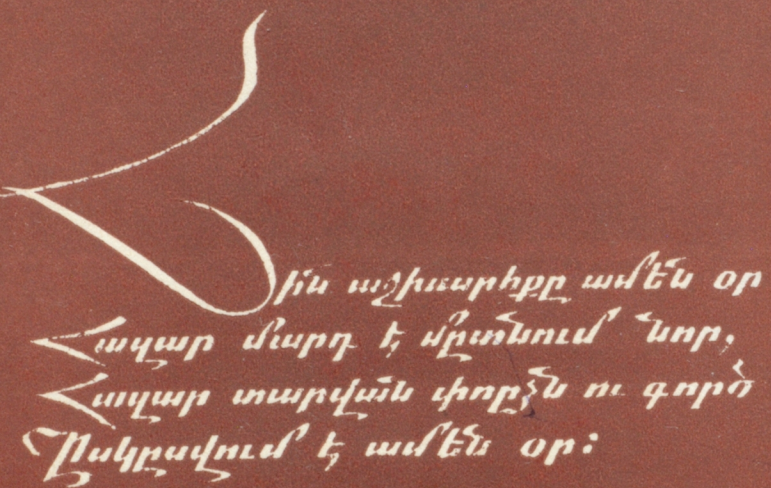 Հին աշխարհքը ամեն օր
Հազար մարդ է մըտնում նոր,
Հազար տարվան փորձն ու գործ
Սկըսվում է ամեն օր։